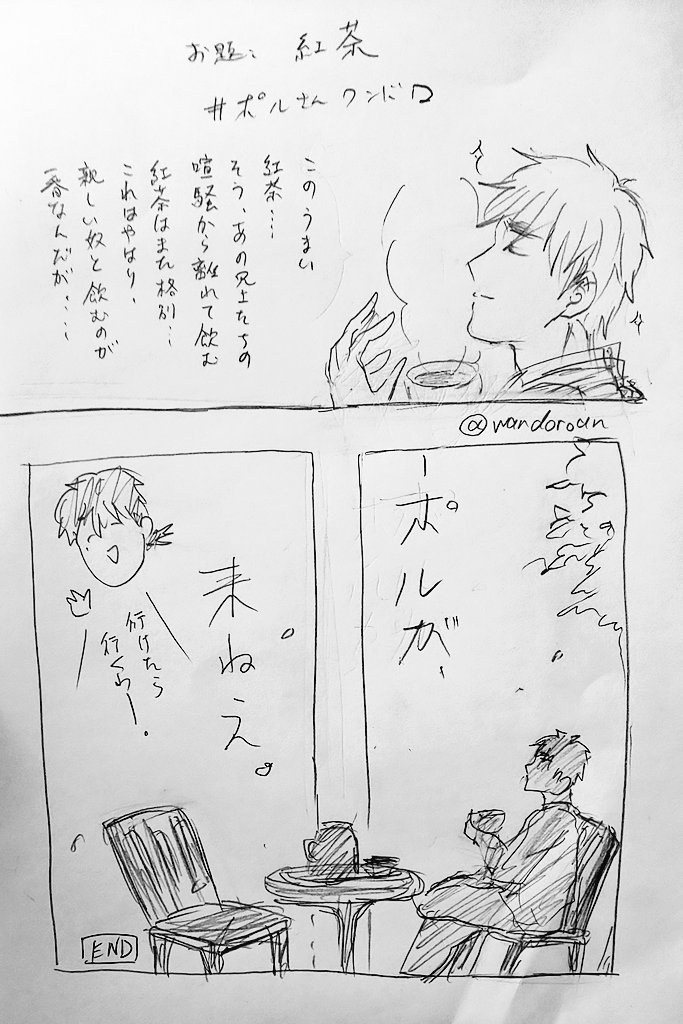 お題: 紅茶
#ポルさんワンドロ
このうまい
紅茶…
そう、あの兄上たちの
喧騒から離れて飲む
紅茶はまた格別…
これはやはり、
親しい奴と飲むのが
一番なんだが、…
@wandoroan
ーポルが、
来ねえ。
行けたら
行くわー。
END